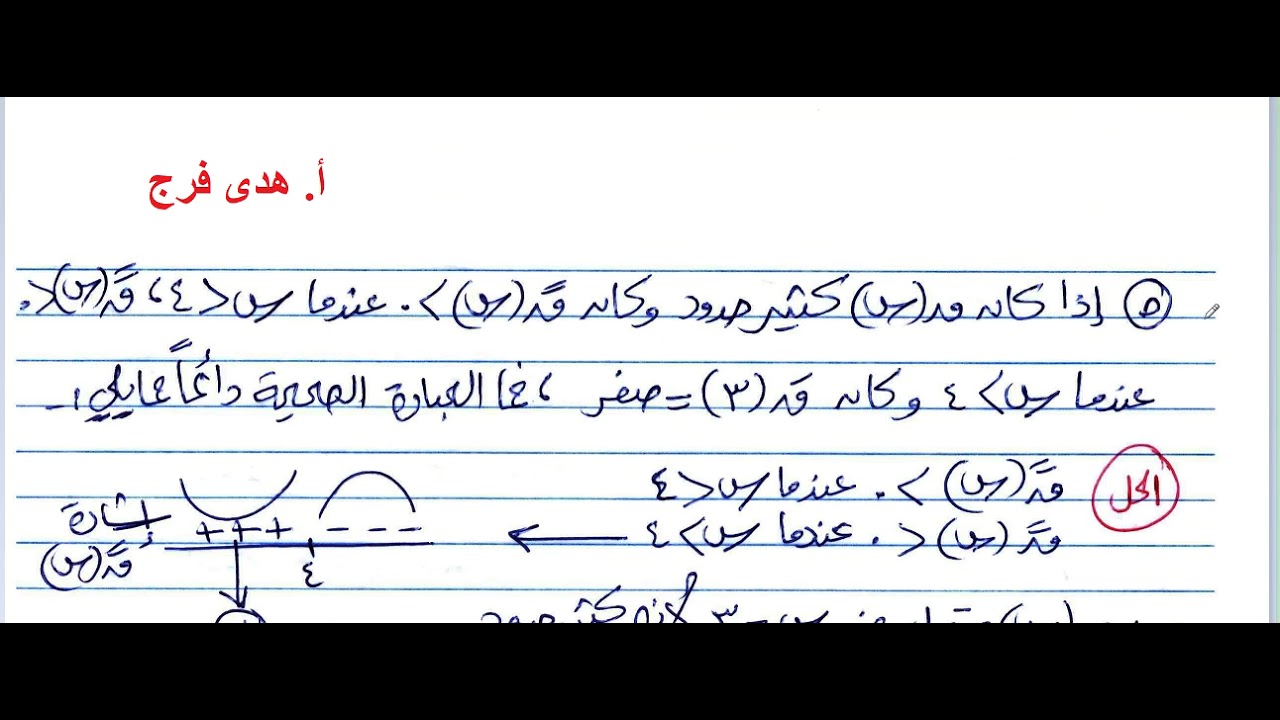 أ. هدى فرج
٥ إذا كان ق(س) كثير حدود وكان قً(س) > ٠ عندما س < ٤ ، قً(س) < ٠
عندما س > ٤ وكان قَ(٣) = صفر ، فما العبارة الصحيحة دائماً مما يلي :-
الحل قً(س) > ٠ عندما س < ٤
قً(س) < ٠ عندما س > ٤
+ + + - - - -
إشارة قً(س)
٤
س = ٣ لأنه كثير حدود